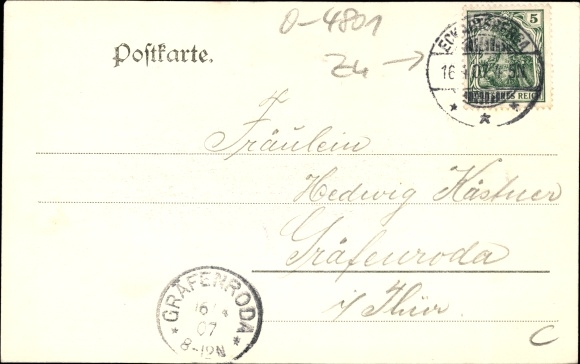 O-4801
Zu
Postkarte.
5
ECKARTSBERGA
16
07
DEUTSCHES REICH
Fräulein
Hedwig Kästner
Gräfenroda
i/Thür.
GRÄFENRODA
16/4
07
8-12N
C